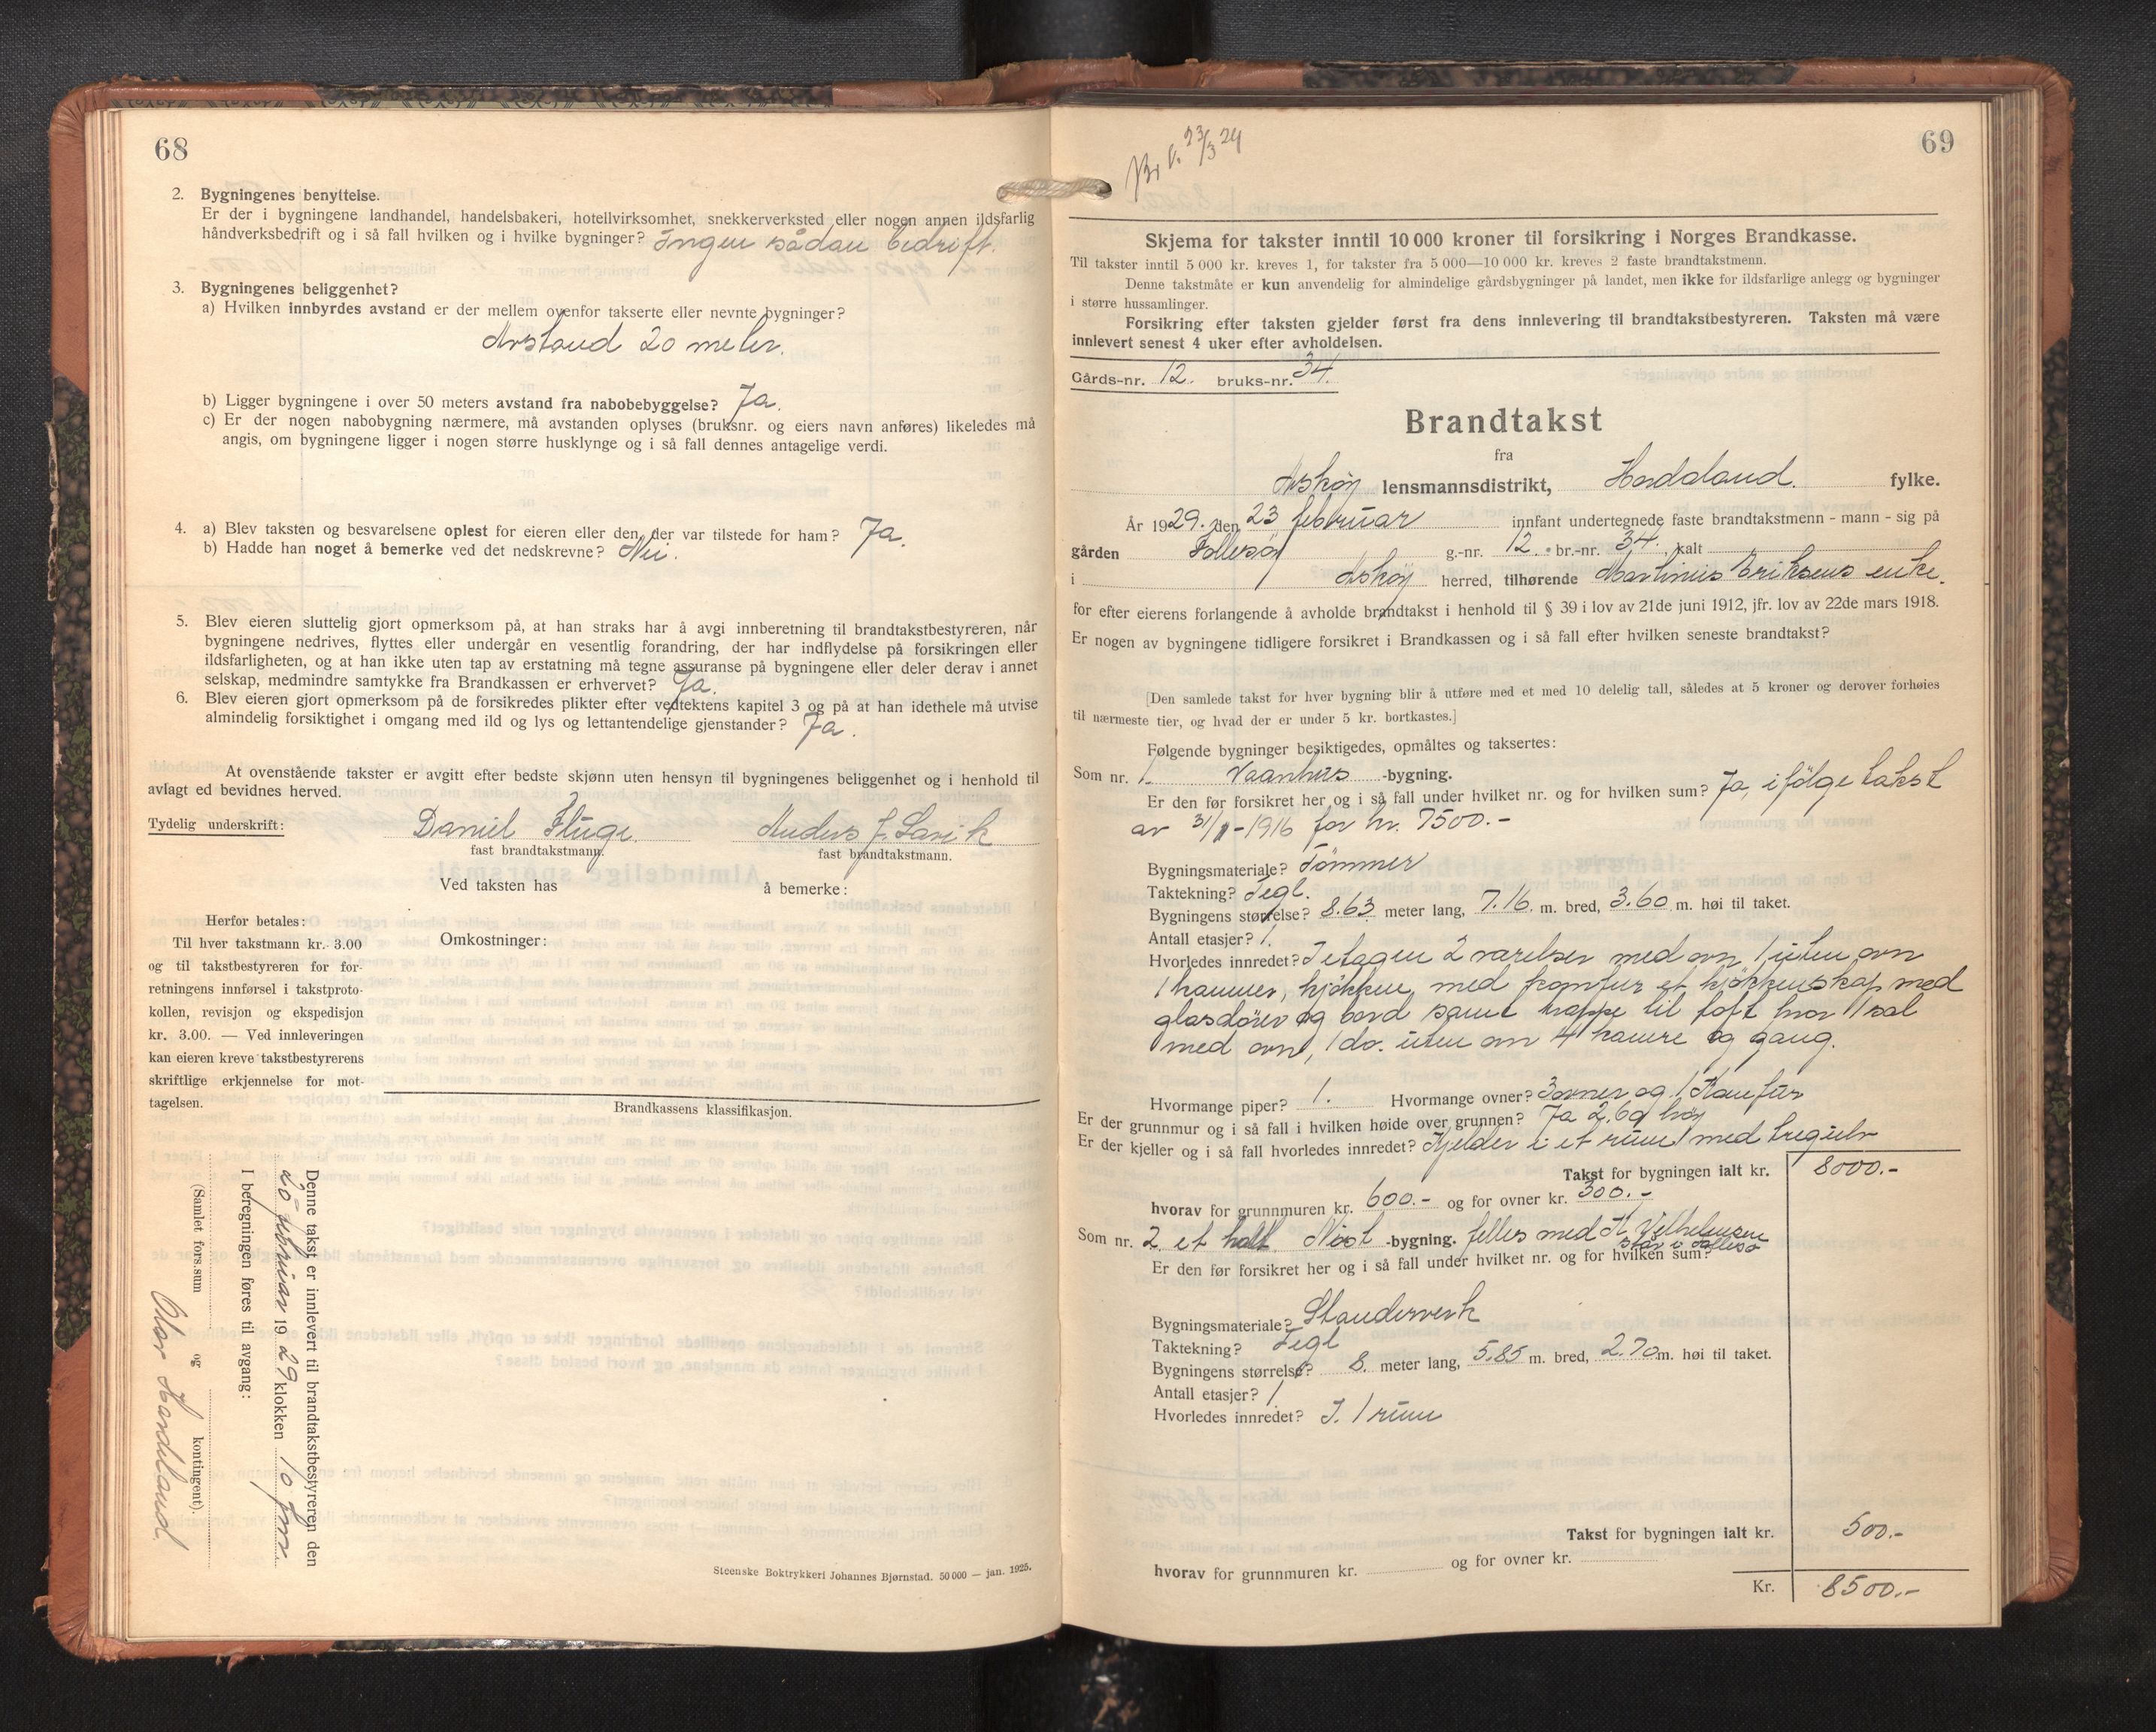 68
2. Bygningenes benyttelse.
Er der i bygningene landhandel, handelsbakeri, hotellvirksomhet, snekkerverksted eller nogen annen ildsfarlig
håndverksbedrift og i så fall hvilken og i hvilke bygninger? Ingen sådan bedrift.
3. Bygningenes beliggenhet?
a) Hvilken innbyrdes avstand er der mellem ovenfor takserte eller nevnte bygninger?
Avstand 20 meter.
b) Ligger bygningene i over 50 meters avstand fra nabobebyggelse? Ja.
c) Er der nogen nabobygning nærmere, må avstanden oplyses (bruksnr. og eiers navn anføres) likeledes må
angis, om bygningene ligger i nogen større husklynge og i så fall dennes antagelige verdi.
4. a) Blev taksten og besvarelsene oplest for eieren eller den, der var tilstede for ham? Ja.
b) Hadde han noget å bemerke ved det nedskrevne? Nei.
5. Blev eieren sluttelig gjort opmerksom på, at han straks har å avgi innberetning til brandtakstbestyreren, når
bygningene nedrives, flyttes eller undergår en vesentlig forandring, der har indflydelse på forsikringen eller
ildsfarligheten, og at han ikke uten tap av erstatning må tegne assuranse på bygningene eller deler derav i annet
selskap, medmindre samtykke fra Brandkassen er erhvervet? Ja.
6. Blev eieren gjort opmerksom på de forsikredes plikter efter vedtektens kapitel 3 og på at han idethele må utvise
almindelig forsiktighet i omgang med ild og lys og lettantendelige gjenstander? Ja.
At ovenstående takster er avgitt efter bedste skjønn uten hensyn til bygningenes beliggenhet og i henhold til
avlagt ed bevidnes herved.
Tydelig underskrift: Daniel Fluge. Anders J. Larik
fast brandtakstmann. fast brandtakstmann.
Ved taksten has å bemerke:
Herfor betales:
Til hver takstmann kr. 3.00
og til takstbestyreren for for-
retningens innførsel i takstproto-
kollen, revisjon og ekspedisjon
kr. 3.00. — Ved innleveringen
kan eieren kreve takstbestyrerens
skriftlige erkjennelse for mot-
tagelsen.
Omkostninger:
Brandkassens klassifikasjon.
Denne takst er innlevert til brandtakstbestyreren den
26 februar 1929 klokken 10 fm.
I beregningen føres til avgang:
(Samlet fors.sum og kontingent).
Olav Hordeland
Steenske Boktrykkeri Johannes Bjørnstad. 50 000 — jan. 1925.
23/3 29
69
Skjema for takster inntil 10 000 kroner til forsikring i Norges Brandkasse.
Til takster inntil 5 000 kr. kreves 1, for takster fra 5 000—10 000 kr. kreves 2 faste brandtakstmenn.
Denne takstmåte er kun anvendelig for almindelige gårdsbygninger på landet, men ikke for ildsfarlige anlegg og bygninger
i større hussamlinger.
Forsikring efter taksten gjelder først fra dens innlevering til brandtakstbestyreren. Taksten må være
innlevert senest 4 uker efter avholdelsen.
Gårds-nr. 12. bruks-nr. 34.
Brandtakst
fra
Askøy lensmannsdistrikt, Hordaland. fylke.
År 1929. den 23 februar innfant undertegnede faste brandtakstmenn - mann - sig på
gården Follesøy g.-nr. 12. br.-nr. 34., kalt
i Askøy herred, tilhørende Martinius Eriksens enke.
for efter eierens forlangende å avholde brandtakst i henhold til § 39 i lov av 21de juni 1912, jfr. lov av 22de mars 1918.
Er nogen av bygningene tidligere forsikret i Brandkassen og i så fall efter hvilken seneste brandtakst?
[Den samlede takst for hver bygning blir å utføre med et med 10 delelig tall, således at 5 kroner og derover forhøies
til nærmeste tier, og hvad der er under 5 kr. bortkastes.]
Følgende bygninger besiktigedes, opmåltes og taksertes:
Som nr. 1. Vaanhus -bygning.
Er den før forsikret her og i så fall under hvilket nr. og for hvilken sum? Ja, ifølge takst
av 31/1-1916 for kr. 7500.-
Bygningsmateriale? Tømmer
Taktekning? Tegl.
Bygningens størrelse? 8.63 meter lang, 7.16. m. bred, 3.60 m. høi til taket.
Antall etasjer? 1.
Hvorledes innredet? I etagen 2 værelser med ovn 1 uten ovn
1 kammer, kjøkken med komfur et kjøkkenskap med
glasdører og bord samt trappe til loft hvor 1 sal
med ovn, 1 do. uten ovn 4 kamre og gang.
Hvormange piper? 1. Hvormange ovner? 3 ovner og 1 Komfur
Er der grunnmur og i så fall i hvilken høide over grunnen? Ja 2.60 høy
Er der kjeller og i så fall hvorledes innredet? Kjelder i et rum med tregulv
Takst for bygningen ialt kr. 8000.-
hvorav for grunnmuren kr. 600.- og for ovner kr. 300.-
Som nr. 2 et halt Nøst -bygning. felles med K. Vilhelmsen
står i Follesø
Er den før forsikret her og i så fall under hvilket nr. og for hvilken sum?
Bygningsmateriale? Standerverk
Taktekning? Tegl
Bygningens størrelse? 8. meter lang, 5.85 m. bred, 2.70 m. høi til taket.
Antall etasjer? 1.
Hvorledes innredet? I. 1 rum
Takst for bygningen ialt kr. 500.-
hvorav for grunnmuren kr. og for ovner kr.
Kr. 8500.-